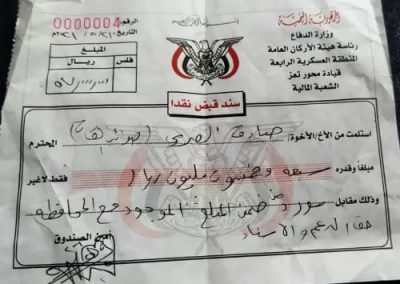 الجمهورية اليمنية
وزارة الدفاع
رئاسة هيئة الأركان العامة
المنطقة العسكرية الرابعة
قيادة محور تعز
الشعبة المالية
الرقم: 0000004
التاريخ:
المبلغ
فلس ريال
سند قبض نقدا
استلمت من الأخ/الأخوة: صادق المحترم
مبلغاً وقدره سبعة وخمسون مليون ريال فقط لاغير
وذلك مقابل ضمن المبلغ الموجود مع المحافظة
حق الدعم والاسناد
أمين الصندوق